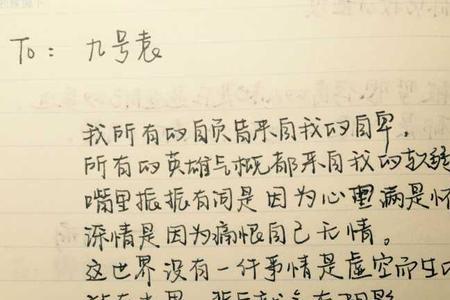 To: 九号袁
我所有的自负皆来自我的自卑,
所有的英雄气概都来自我的软弱
嘴里振振有词是因为心里满是怀
深情是因为痛恨自己无情。
这世界没有一件事情是虚空而生的